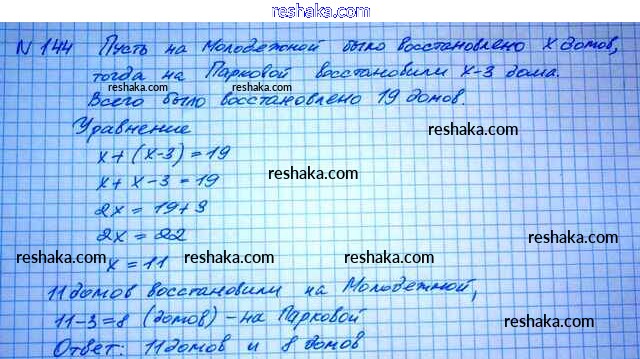 reshaka.com
N 144 Пусть на Молодежной было восстановлено x домов,
тогда на Парковой восстановили x-3 дома.
reshaka.com reshaka.com
Всего было восстановлено 19 домов.
Уравнение
reshaka.com
x+(x-3)=19
x+x-3=19
reshaka.com
2x=19+3
2x=22
reshaka.com reshaka.com reshaka.com
x=11
11 домов восстановили на Молодежной,
11-3=8 (домов) - на Парковой
reshaka.com
Ответ: 11 домов и 8 домов